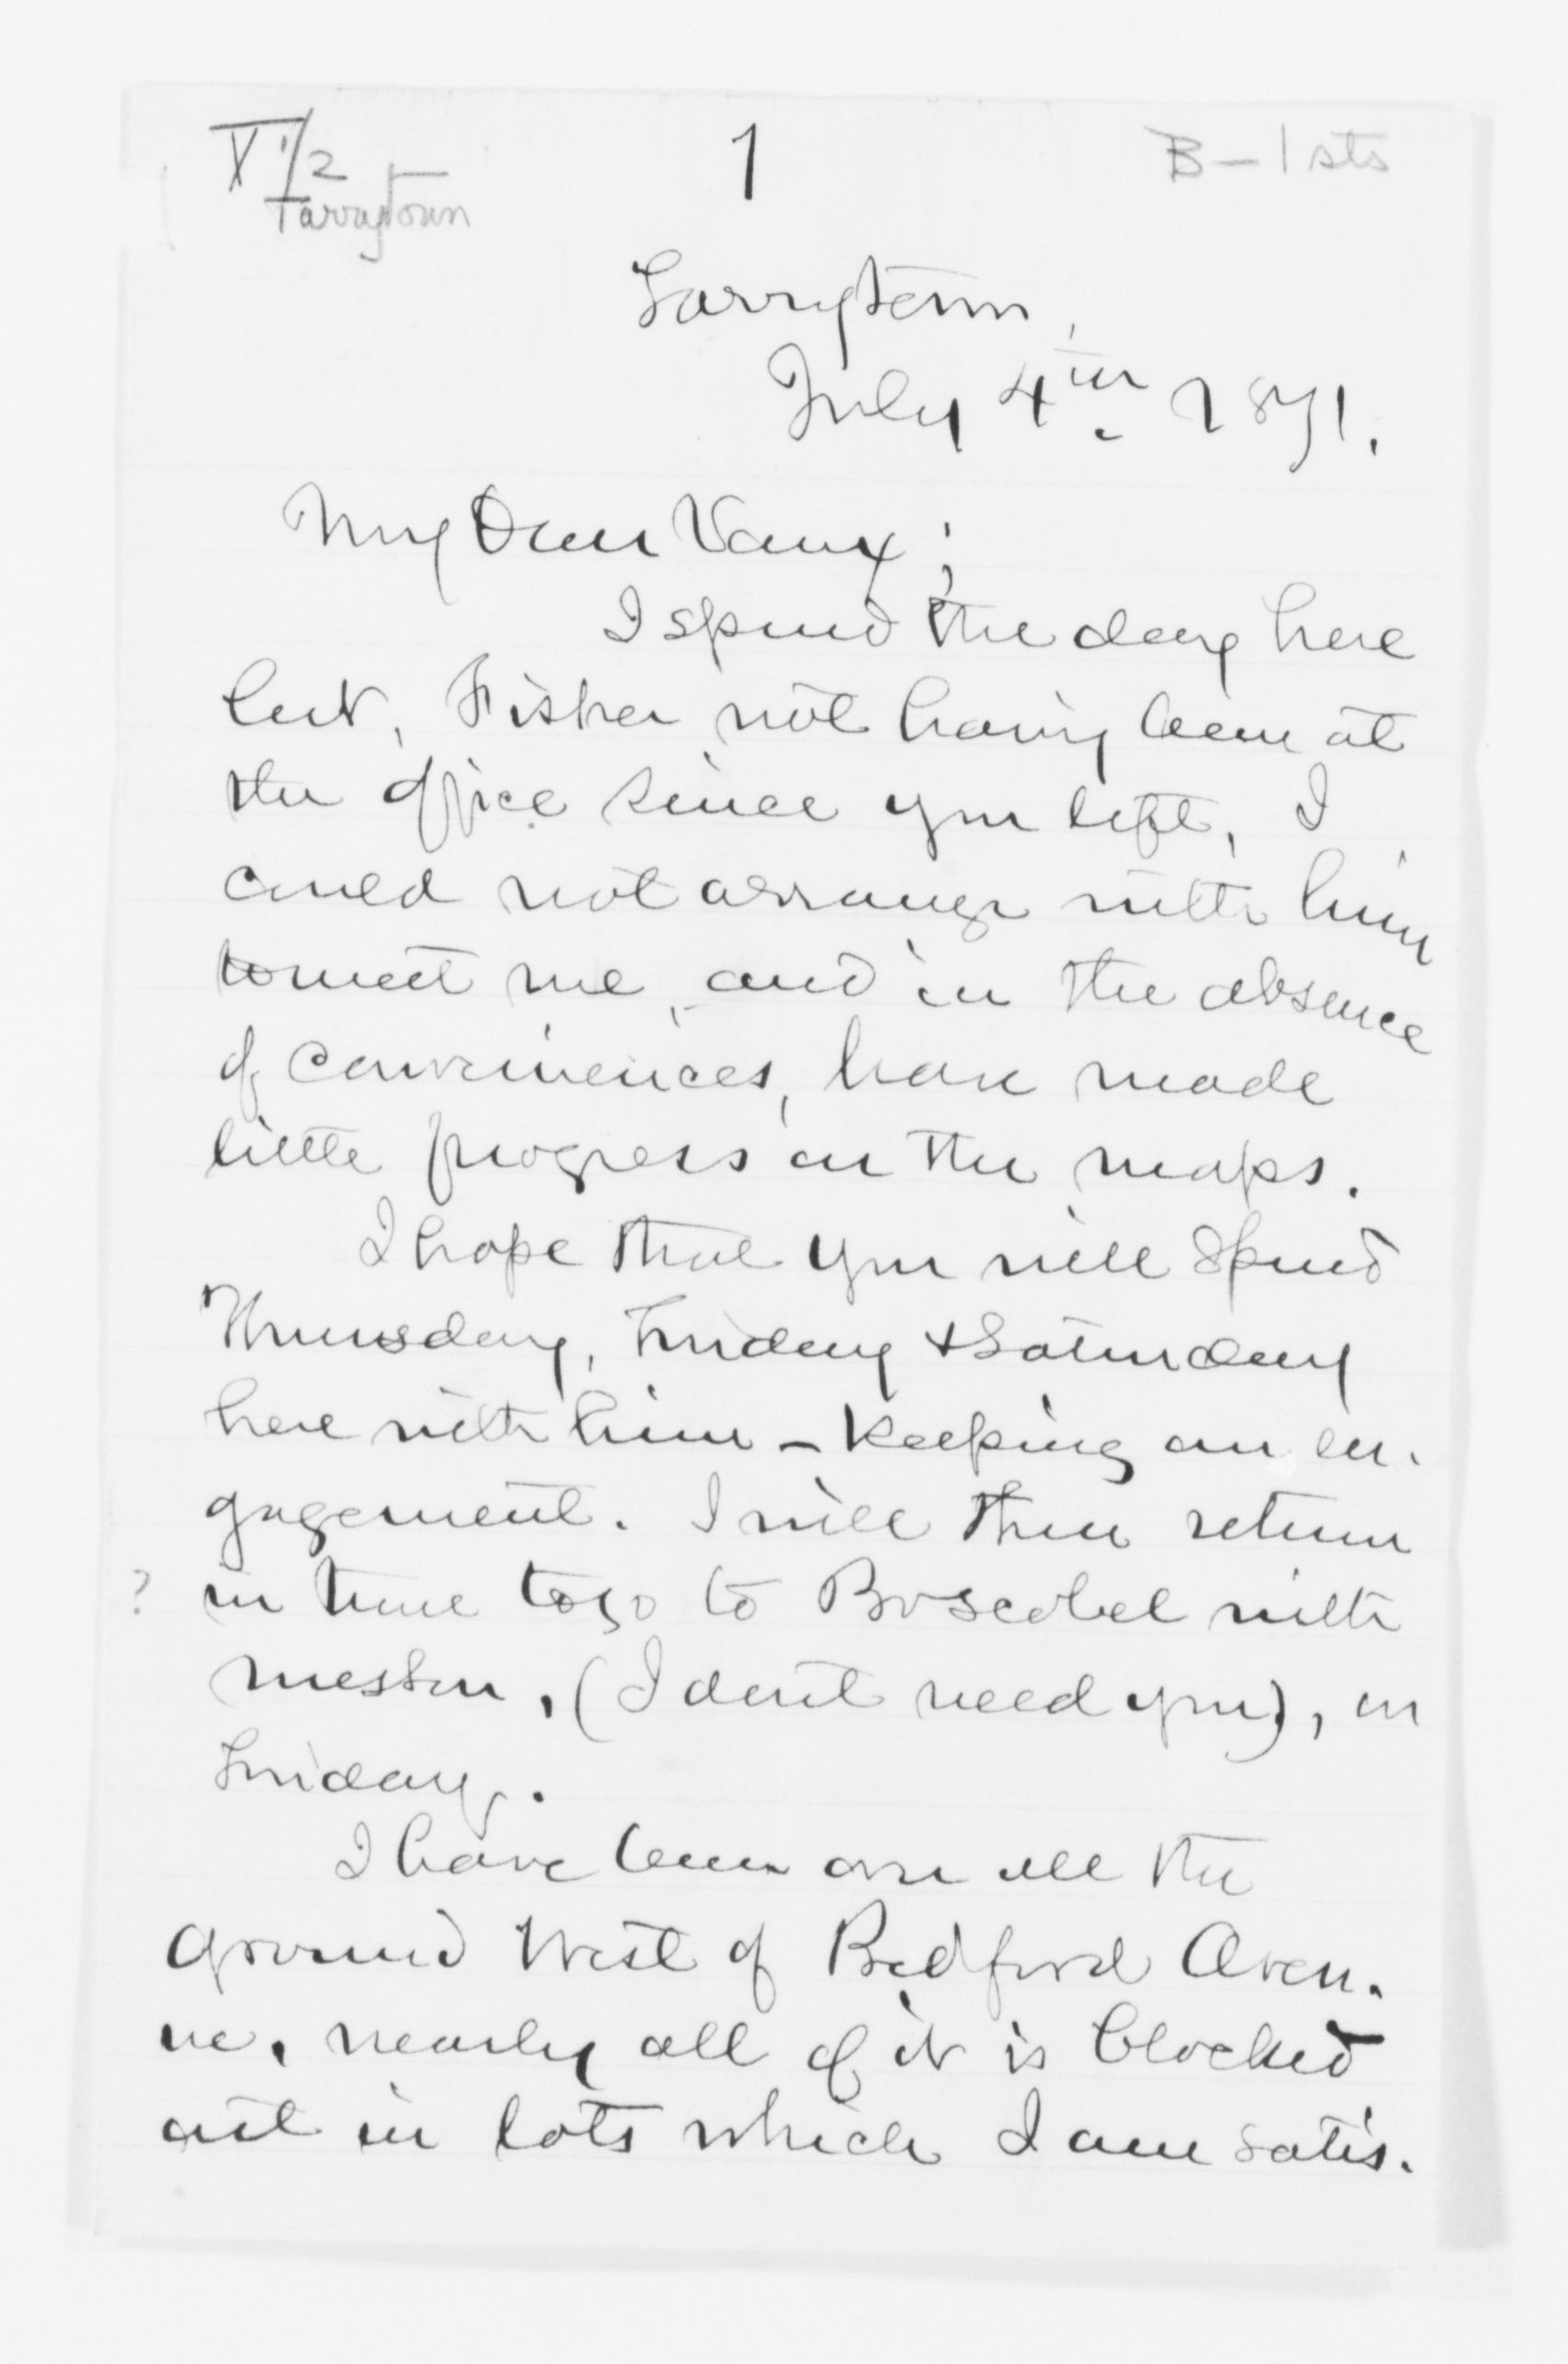 X 1/2
Tarrytown
1
B-1 sts
Tarrytown,
July 4th. 1871.
My Dear Vaux;
I spend the day here
but, Fisher not having been at
the office since you left, I
could not arrange with him
to meet me, and in the absence
of conveniences, have made
little progress on the maps.
I hope that you will spend
Thursday, Friday & Saturday
here with him - keeping an en-
gagement. I will then return
? in time to go to Boscobel with
, (I dont need you), on
Friday.
I have been over all the
ground West of Bedford Aven-
ue. nearly all of it is blocked
out in lots which I am satis-